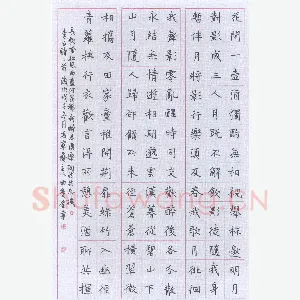 花間一壺酒獨酌無相親舉杯邀明月
對影成三人月既不解飲影徒隨我身
暫伴月將影行樂須及春我歌月徘徊
我舞影零亂醒時同交歡醉後各分散
永結無情遊相期邈雲漢暮從碧山下
山月隨人歸卻顧所來徑蒼蒼橫翠微
相攜及田家童稚開荊扉綠竹入幽徑
青蘿拂行衣歡言得所憩美酒聊共揮
長歌吟松風曲盡河星稀我醉君復樂陶然共忘機
李白詩
Shufawang.CN